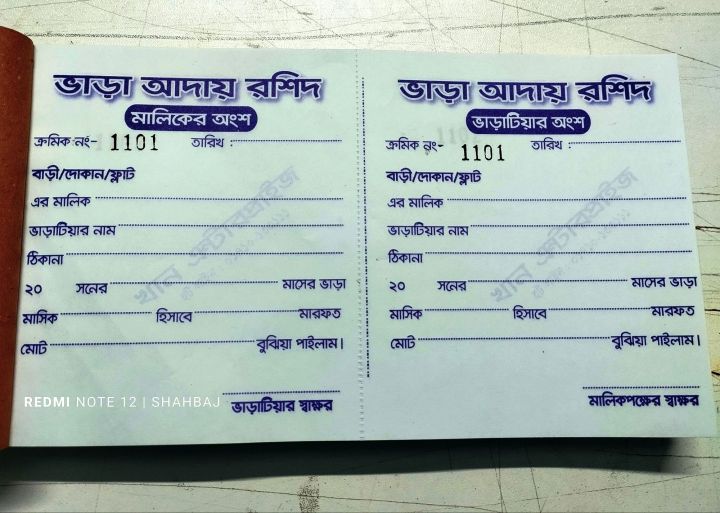 ভাড়া আদায় রশিদ
মালিকের অংশ
ক্রমিক নং- 1101 তারিখ :
বাড়ী/দোকান/ফ্লাট
এর মালিক
ভাড়াটিয়ার নাম
ঠিকানা
২০ সনের মাসের ভাড়া
মাসিক হিসাবে মারফত
মোট বুঝিয়া পাইলাম।
ভাড়াটিয়ার স্বাক্ষর
REDMI NOTE 12 | SHAHBAJ
ভাড়া আদায় রশিদ
ভাড়াটিয়ার অংশ
ক্রমিক নং- 1101 তারিখ :
বাড়ী/দোকান/ফ্লাট
এর মালিক
ভাড়াটিয়ার নাম
ঠিকানা
২০ সনের মাসের ভাড়া
মাসিক হিসাবে মারফত
মোট বুঝিয়া পাইলাম।
মালিকপক্ষের স্বাক্ষর
খান এন্টারপ্রাইজ
খান এন্টারপ্রাইজ